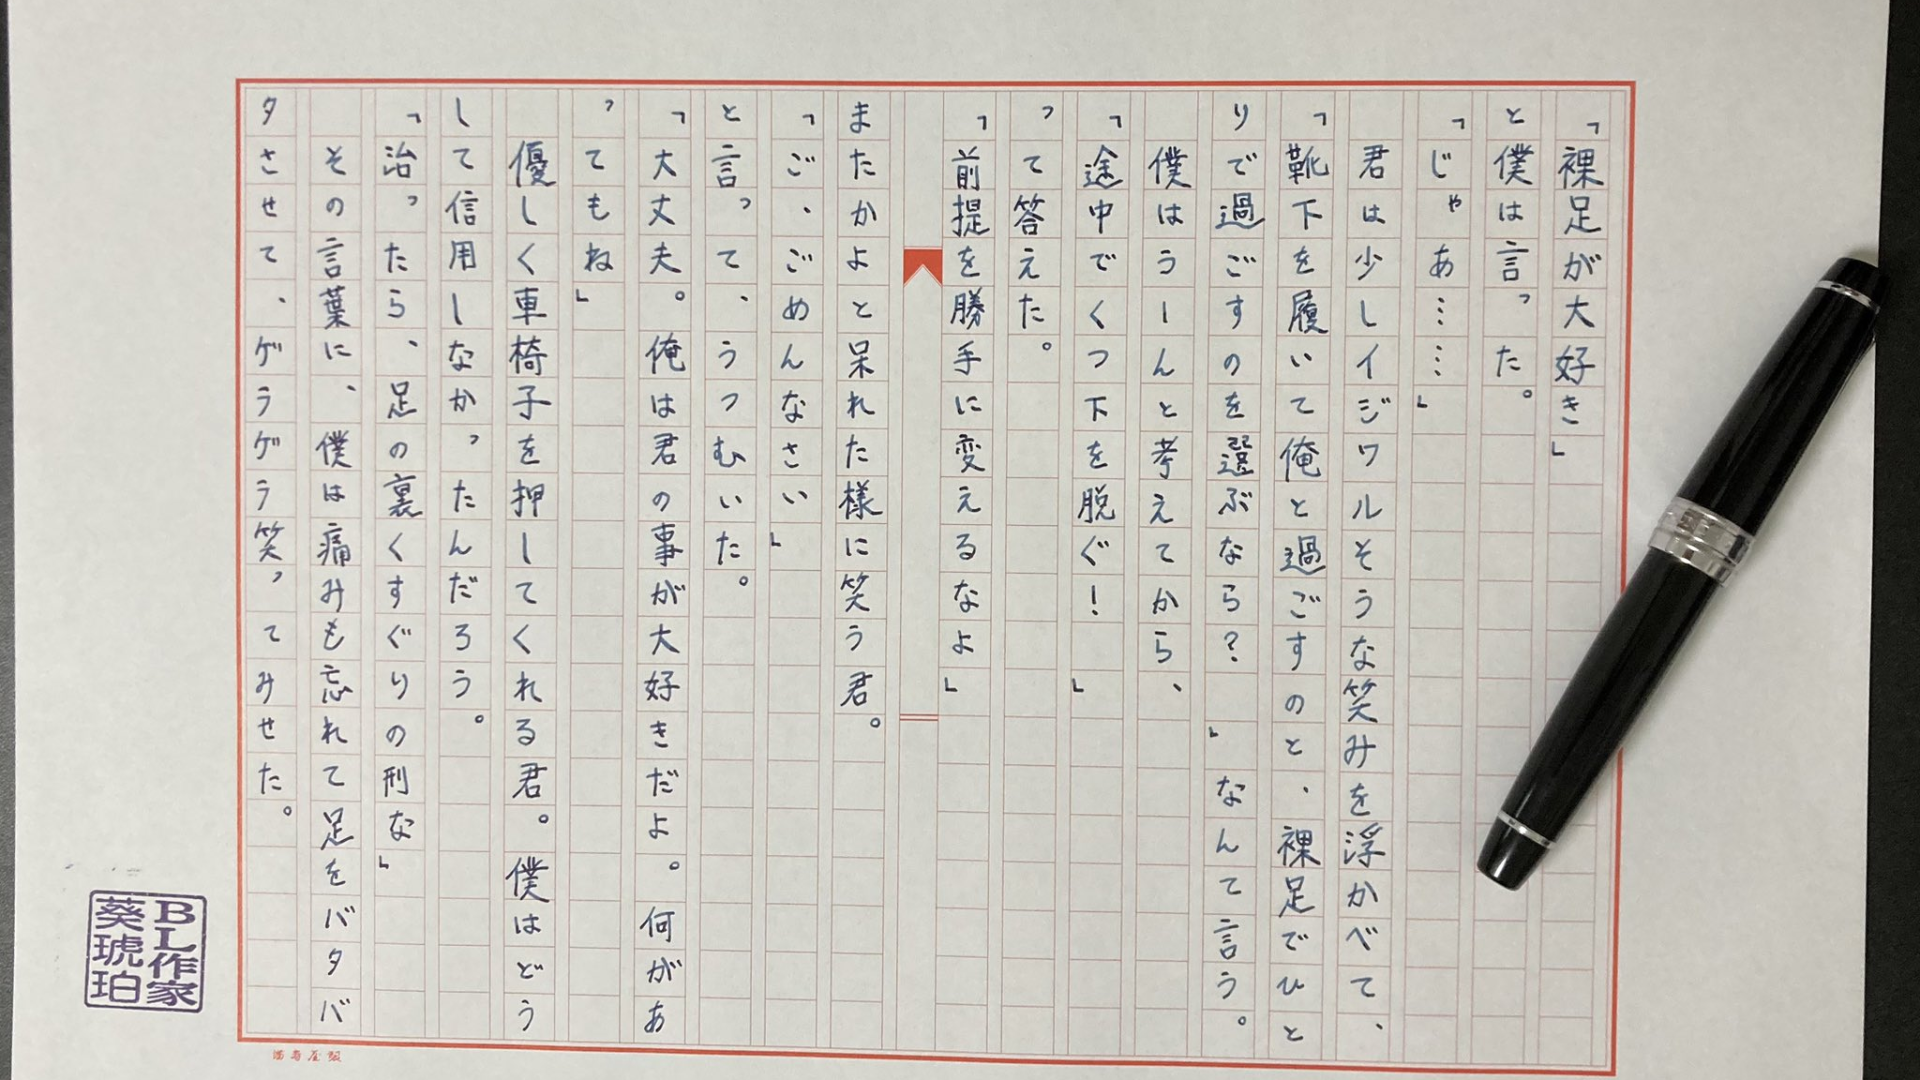 「裸足が大好き」
と僕は言った。
「じゃあ……」
君は少しイジワルそうな笑みを浮かべて、
「靴下を履いて俺と過ごすのと、裸足でひと
りで過ごすのを選ぶなら？　」なんて言う。
僕はうーんと考えてから、
「途中でくつ下を脱ぐ！　」
って答えた。
「前提を勝手に変えるなよ」
またかよと呆れた様に笑う君。
「ご、ごめんなさい」
と言って、うつむいた。
「大丈夫。俺は君の事が大好きだよ。何があ
ってもね」
優しく車椅子を押してくれる君。僕はどう
して信用しなかったんだろう。
「治ったら、足の裏くすぐりの刑な」
その言葉に、僕は痛みも忘れて足をバタバ
タさせて、ゲラゲラ笑ってみせた。
満寿屋製
BL作家
葵琥珀